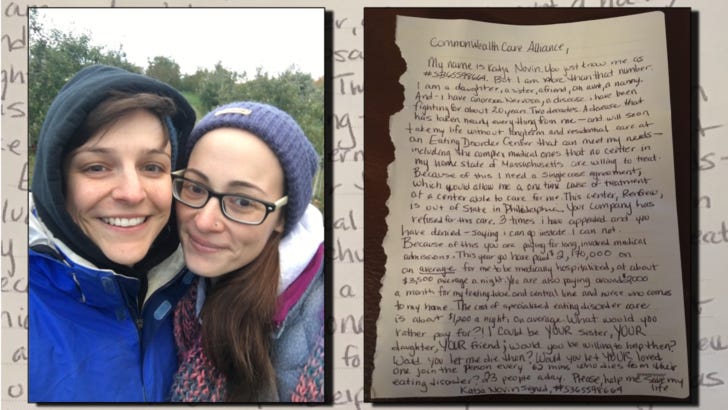 Commonwealth Care Alliance,
My name is Katja Novin. You just know me as
#5365598664. But I am more than that number.
I am a daughter, a sister, a friend, an aunt, a nanny.
And - I have anorexia Nervosa, a disease I have been
fighting for about 20 years. Two decades. A disease that
has taken nearly everything from me - and will soon
take my life without longterm and residential care at
an Eating Disorder Center that can meet my needs -
including the complex medical ones that no center in
my home State of Massachusetts are willing to treat.
Because of this I need a single case agreement,
which would allow me a one time case of treatment
at a center able to care for me. This center, Renfrew,
is out of State in Philadelphia. Your company has
refused for this care. 3 times I have appealed and you
have denied - saying I can go instate. I can not.
Because of this you are paying for long, involved medical
admissions. This year you have paid $2,170,000 on
an average for me to be medically hospitalized, at about
$3,500 average a night. You are also paying around
a month for my feeding tube and central line and nurse who comes
to my home. The cost of specialized eating disorder care
is about $1,200 a night, on average. What would you
rather pay for?! I could be YOUR sister, YOUR
daughter, YOUR friend; would you be willing to help then?
Would you let me die then? Would you let YOUR loved
one join the person every 62 mins who dies from their
eating disorder? 23 people a day. Please help me save my
life
Katja Novin signed, #5365598664